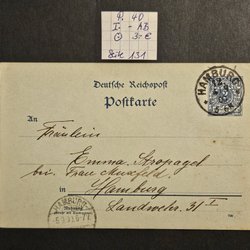 P. 40
I. - AB
3.- €
Seite 131
Deutsche Reichspost
Postkarte
HAMBURG
An
Fräulein
Emma Stropagel
bei Frau
in Hamburg
Landwehr 31 I
Wohnung
HAMBURG